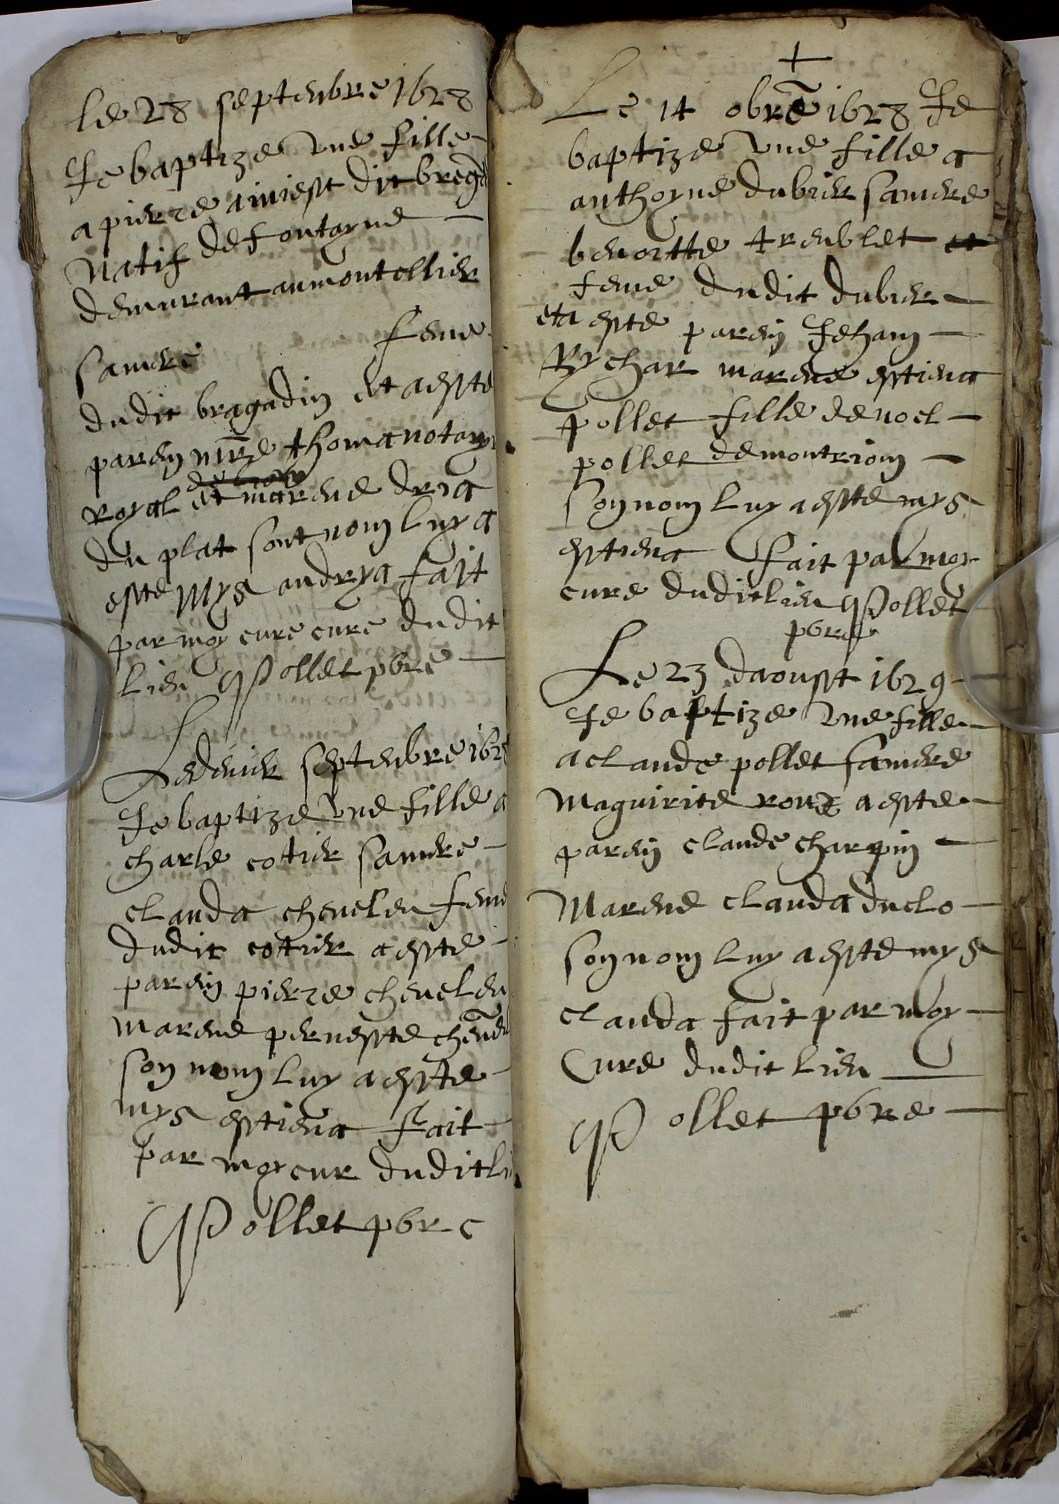 le 28 septenbre 1628
Je baptize une fille
a pierre diniest dit breg
natif de fontayne
demurant au montellier
sa mere feme
dudit bragadin et a este
pareyn mre thoma notayr
royal et marene dria
du plat sont nom luy a
este mys andrya fait
par moy cure cure dudit
lieu Pollet pbre
Le denier septenbre 162
Je baptize une fille a
charle cotier sa mere
clauda cheueleu feme
dudit cotier a este
pareyn pierre cheueleu
marene pernesste cheue
son nom luy a este
mys estiena fait
par moy cur dudit li
Pollet pbre
+
Le 14 obre 1628 Je
baptize une fille a
anthoyne dubier sa mere
benoitte trenblet et
feme dudit dubier
et a este pareyn Jehan
Rychar marene estiena
pollet fille de noel
pollet de montrion
son nom luy a este mys
estiena fait par moy
cure dudit lieu Pollet
pbre
Le 23 daoust 1629
Je baptize une fille
a claude pollet sa mere
maguirite roux a este
pareyn claude charpin
Marene clauda duclo
son nom luy a este mys
clauda fait par moy
Cure dudit lieu
Pollet pbre